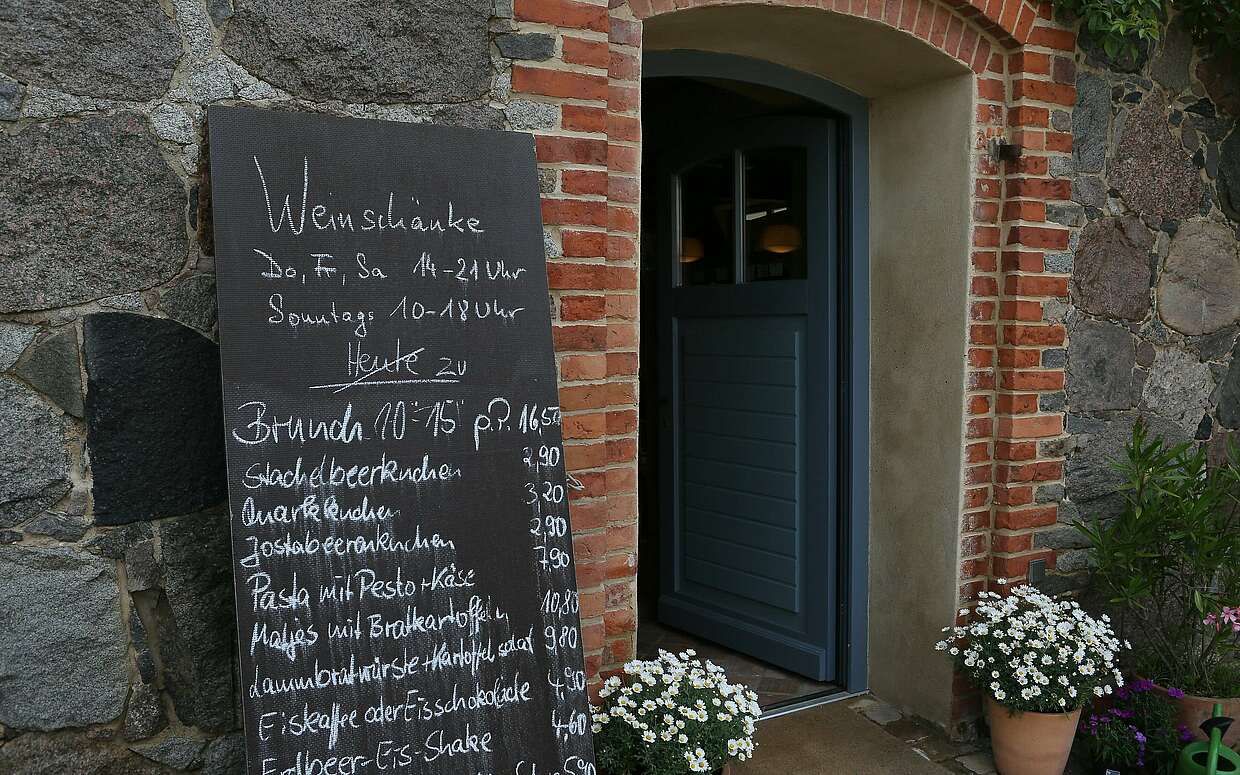 Weinschänke
Do, Fr, Sa 14-21 Uhr
Sonntags 10-18 Uhr
Heute zu
Brunch 10°°-15°° p.P. 16,50
Stachelbeerkuchen 2,90
Quarkkuchen 3,20
Jostabeerenkuchen 2,90
Pasta mit Pesto+Käse 7,90
Matjes mit Bratkartoffeln 10,80
Lammbratwürste+Kartoffelsalat 9,80
Eiskaffee oder Eisschokolade 4,90
Erdbeer-Eis-Shake 4,60
5,90